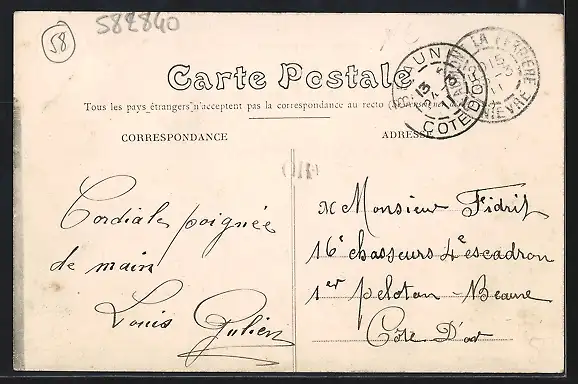 58
582840
Carte Postale
Tous les pays étrangers n'acceptent pas la correspondance au recto
CORRESPONDANCE
ADRESSE
BEAUNE
COTE D'OR
LA FERRIERE
NIEVRE
ORI
Cordiale poignée
de main
Louis Julien
Monsieur Fidrit
16e chasseurs 4e escadron
1er peloton - Beaune
Côte D'or